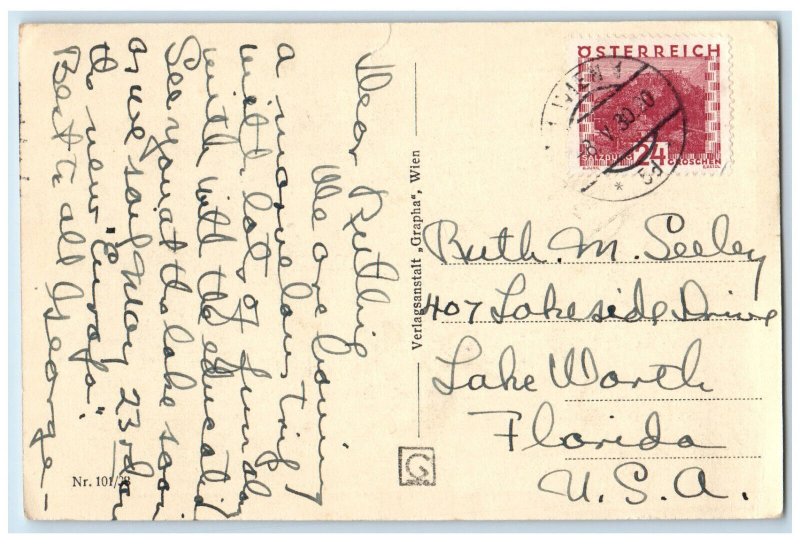 Dear Ruthling
We are having
a marvelous trip
with lots of fun along
with the education
See you at the lake soon
as we sail May 23rd on
the new "Europa".
Best to all George-
Verlagsanstalt „Grapha“, Wien
Nr. 101/
G
ÖSTERREICH
24
GROSCHEN
WIEN 1
8.V.30.20
Ruth. M. Seeley
407 Lakeside Drive
Lake Worth
Florida
U.S.A.